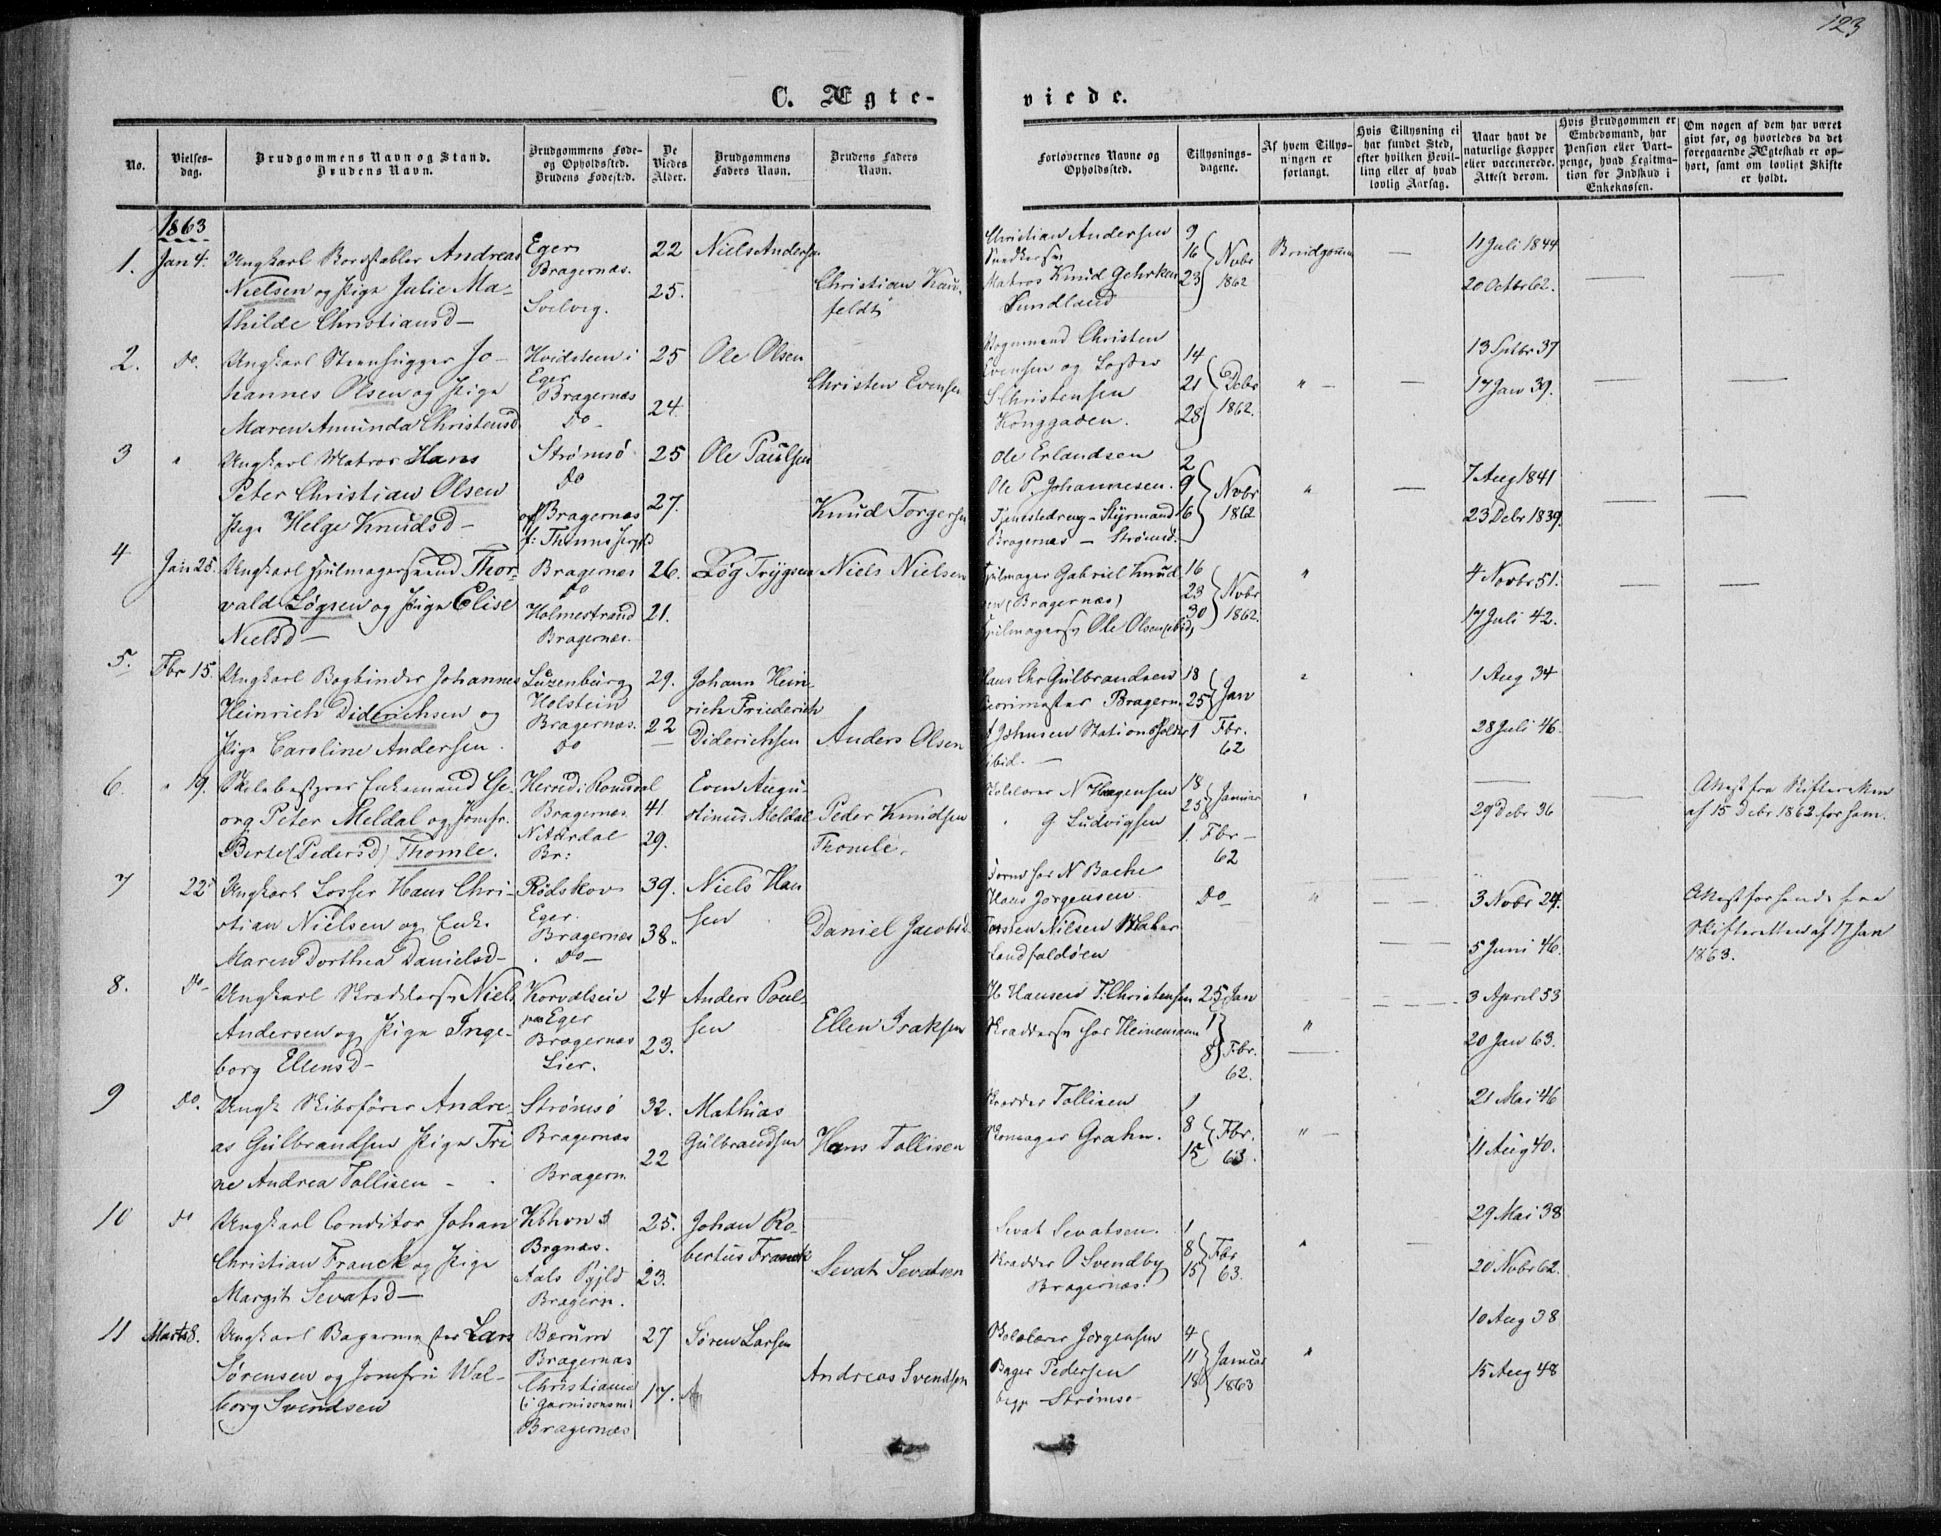 123
C. Ægte-
viede.
No.
Vielses-
dag.
Brudgommens Navn og Stand.
Brudens Navn.
Brudgommens Føde-
og Opholdssted.
Brudens Fødested.
De
Viedes
Alder.
Brudgommens
Faders Navn.
Brudens Faders
Navn.
Forlovernes Navne og
Opholdssted.
Tillysnings-
dagene.
Af hvem Tillys-
ningen er
forlangt.
Hvis Tillysning ei
har fundet Sted,
efter hvilken Bevil-
ling eller af hvad
lovlig Aarsag.
Naar havt de
naturlige Kopper
eller vaccinerede.
Attest derom.
Hvis Brudgommen er
Embedsmand, har
Pension eller Vart-
penge, hvad Legitima-
tion for Indskud i
Enkekassen.
Om nogen af dem har været
givt før, og hvorledes da det
foregaaende Ægteskab er op-
hørt, samt om lovligt Skifte
er holdt.
1863
1. Jan 4. Ungkarl Bordstabler Andreas
Nielsen og Pige Julie Ma-
thilde Christiansd
Eger
Bragernæs.
Svelvig.
22
25.
Niels Andersen
Christian Kau-
feldt
Christian Andersen
Matros Knud Gehrken
Sundland
9
16
23
Novbr
1862
Brudgommen
11 Juli 1844
20 Octbr 62.
2. Do. Ungkarl Steenhugger Jo-
hannes Olsen og Pige
Maren Amunda Christensd
Hvidsteen i
Eger
Bragernæs
Do
25
24.
Ole Olsen
Christen Evensen
Christen
Evensen og Losser
S Christensen
Konggaden.
14
21
28
Debr
1862.
"
13 Sptbr 37
17 Jan 39.
3 " Ungkarl Matros Hans
Peter Christian Olsen
Pige Helge Knudsd
Strømsø
Do
Bragernæs
25
27.
Ole Paulsen
Knud Torgersen
Ole Erlandsen
Ole P. Johannesen.
Tjenestedreng - Styrmand
Bragernæs - Strømsø.
2
9
16
Novbr
1862
"
7 Aug 1841
23 Debr 1839.
4 Jan 25. Ungkarl Hjulmagersvend Thor-
vald Løgsen og Pige Elise
Nielsd
Bragernæs
Do
Holmestrand
Bragernæs.
26.
21.
Løg Trygsen
Niels Nielsen
Hjulmager Gabriel Knud
sen (Bragernæs)
Hjulmagersv Ole Olsen ibid
16
23
30
Novbr
1862.
"
4 Novbr 51.
17 Juli 42.
5. Fbr 15. Ungkarl Bogbinder Johannes
Heinrich Diderichsen og
Pige Caroline Andersen.
Luzenburg
Holstein
Bragernæs.
Do
29.
22
Johann Hein-
rich Friederich
Diderichsen
Anders Olsen
Hans Chr Gulbrandsen
Bragern.
Johnsen Stationsholder
ibid.
18
25
Jan
1 Fbr.
62
"
1 Aug 34
28 Juli 46.
6. " 19. Skolebestyrer Enkemand Ge-
org Peter Meldal og Jomfr.
Berte (Pedersd) Thomle.
Herred i Romsdal
Bragernæs
N Aurdal
Br:
41
29.
Even Augu-
stinus Meldal
Peder Knudsen
Thomle.
Skolelærer N Hagensen
" G Ludvigsen
18
25
Januar
1. Fbr
62
"
29 Debr 36
Attest fra Skifteretten
af 15 Debr 1862 for ham.
7 22 Ungkarl Losser Hans Chri-
stian Nielsen og Enke
Maren Dorthea Danielsd
Rødskov
Eger.
Bragernæs
Do
39.
38.
Niels Han
sen
Daniel Jacobsd
N Bache
Hans Jørgensen
Torsten Nilsen
Landfaldøen
Do
"
3 Novbr 24.
5 Juni 46.
Attest for hende fra
Skifteretten af 17 Jan
1863.
8. Do Ungkarl Skræddersv Niels
Andersen og Pige Inge-
borg Ellensd
Eger
Bragernæs
Lier.
24
23.
Anders Poul-
sen
Ellen Isaksen
H Hansen T. Christensen
Skræddersv hos Heinemann
25 Jan
1
8
Fbr.
62.
"
3 April 53
20 Jan 63.
9 Do. Ungk Skibsfører Andre-
as Gulbrandsen Pige Tri
ne Andrea Tollisen
Strømsø
Bragernæs
Bragern.
32.
22
Mathias
Gulbrandsen
Hans Tollisen
Skrædder Tollisen
Skomager Grahn.
1
8
15
Fbr.
63.
"
21 Mai 46
11 Aug 40.
10 Do Ungkarl Conditor Johan
Christian Franck og Pige
Margit Sevatsd
Kbhvn
Brgnæs.
Aals Pgjld
Bragern.
25.
23.
Johan Ro-
bertus Franck
Sevat Sevatsen
Sevat Sevatsen.
Skrædder O Svendby
Bragernæs.
1
8
15
Fbr
63.
"
29 Mai 38
20 Novbr 62.
11 Marts 8. Ungkarl Bagermester Lars
Sørensen og Jomfru Wal-
borg Svendsen
Bærum
Bragernæs
Christiania
(i Garnisonsm)
Bragernæs
27
17.
Søren Larsen
Andreas Svendsen
Skolelærer Jørgensen
Bager Pedersen
begge Strømsø
4
11
18
Januar
1863
"
10 Aug 38
15 Aug 48